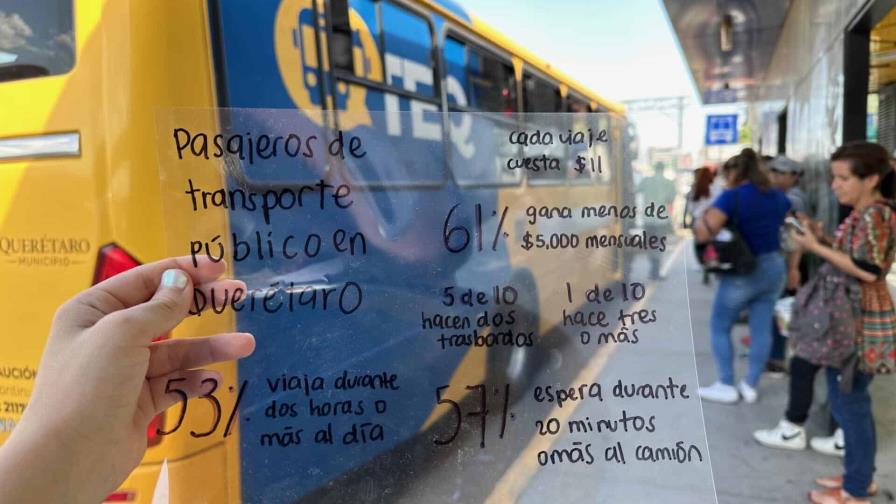 Pasajeros de
transporte
público en
Querétaro
cada viaje
cuesta $11
61% gana menos de
$5,000 mensuales
5 de 10
hacen dos
trasbordos
1 de 10
hace tres
o más
53% viaja durante
dos horas o
más al día
57% espera durante
20 minutos
o más al camión
QUERÉTARO
MUNICIPIO
TEQ